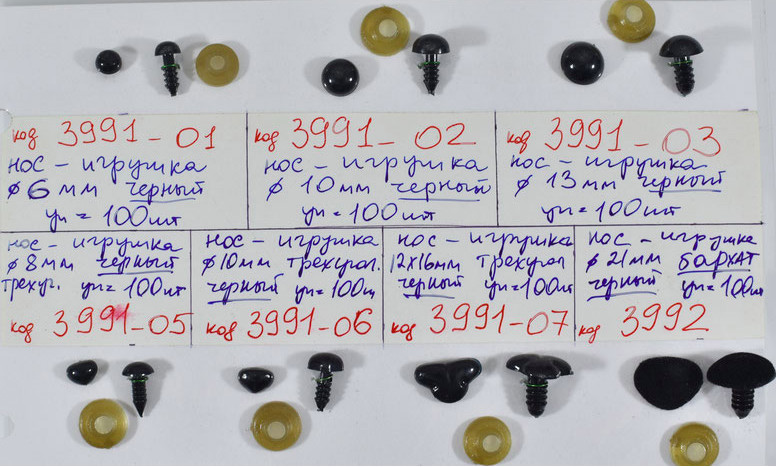 код 3991-01
нос - игрушка
ø 6 мм черный
уп = 100шт
код 3991-02
нос - игрушка
ø 10мм черный
уп = 100шт
код 3991-03
нос - игрушка
ø 13мм черный
уп = 100шт
нос - игрушка
ø 8мм черный
трехуг. уп = 100шт
код 3991-05
нос - игрушка
ø 10мм трехугол.
черный уп = 100ш
код 3991-06
нос - игрушка
12х16мм трехугол
черный уп = 100шт
код 3991-07
нос - игрушка
ø 21мм бархат
черный уп = 100шт
код 3992